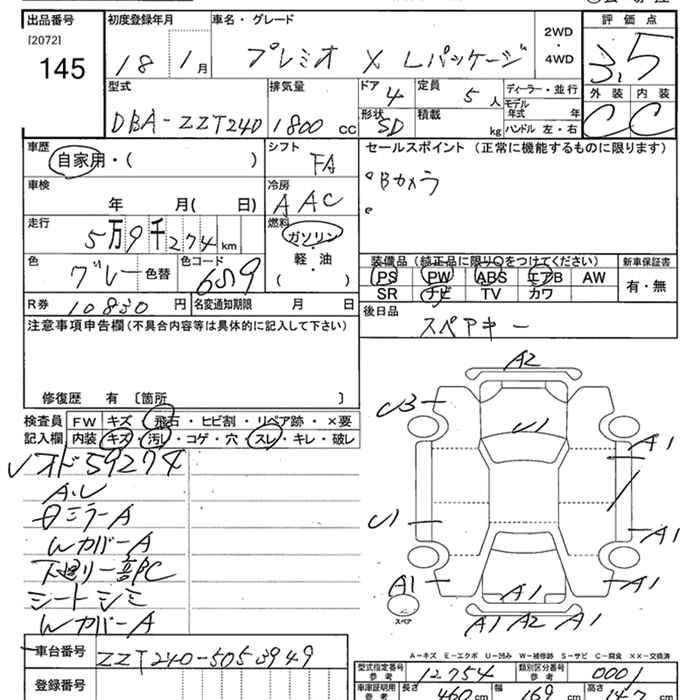 出品番号 初度登録年月 車名・グレード 2WD・4WD 評価点
[2072]
145 18 1月 プレミオ X Lパッケージ 3.5
型式 排気量 ドア 定員 ディーラー・並行 外装 内装
DBA-ZZT240 1800 cc 4 5人 モデル年式 年 C C
形状 SD 積載 kg ハンドル 左・右
車歴 シフト セールスポイント (正常に機能するものに限ります)
自家用・( ) FA
車検 冷房 Bカメラ
年 月( 日) AAC
走行 燃料
5万9千274km ガソリン・軽油( )
色 色替 色コード 装備品 (純正品に限り○をつけてください) 新車保証書
グレー 6S9 PS PW ABS エアB AW 有・無
SR ナビ TV カワ
R券 10830円 名変通知期限 月 日 後日品
注意事項申告欄(不具合内容等は具体的に記入して下さい) スペアキー
修復歴 有 〔箇所 〕
検査員記入欄 FW キズ・飛石・ヒビ割・リペア跡・×要
内装 キズ・汚レ・コゲ・穴・スレ・キレ・破レ
オド59274
A.U
ミラーA
Wカバー A
下廻り一部PC
シートシミ
Wカバー A
A2
U3
U1
A1
U1
A1
A1
A1
A1
A1 A2 A1
スペア
A-キズ E-エクボ U-凹み W-補修跡 S-サビ C-腐食 ××-交換済
車台番号 ZZT240-5053949
型式指定番号 参考 12754 類別区分番号 参考 0001
登録番号
車庫証明用 参考 長さ 460 cm 幅 169 cm 高さ 147 cm